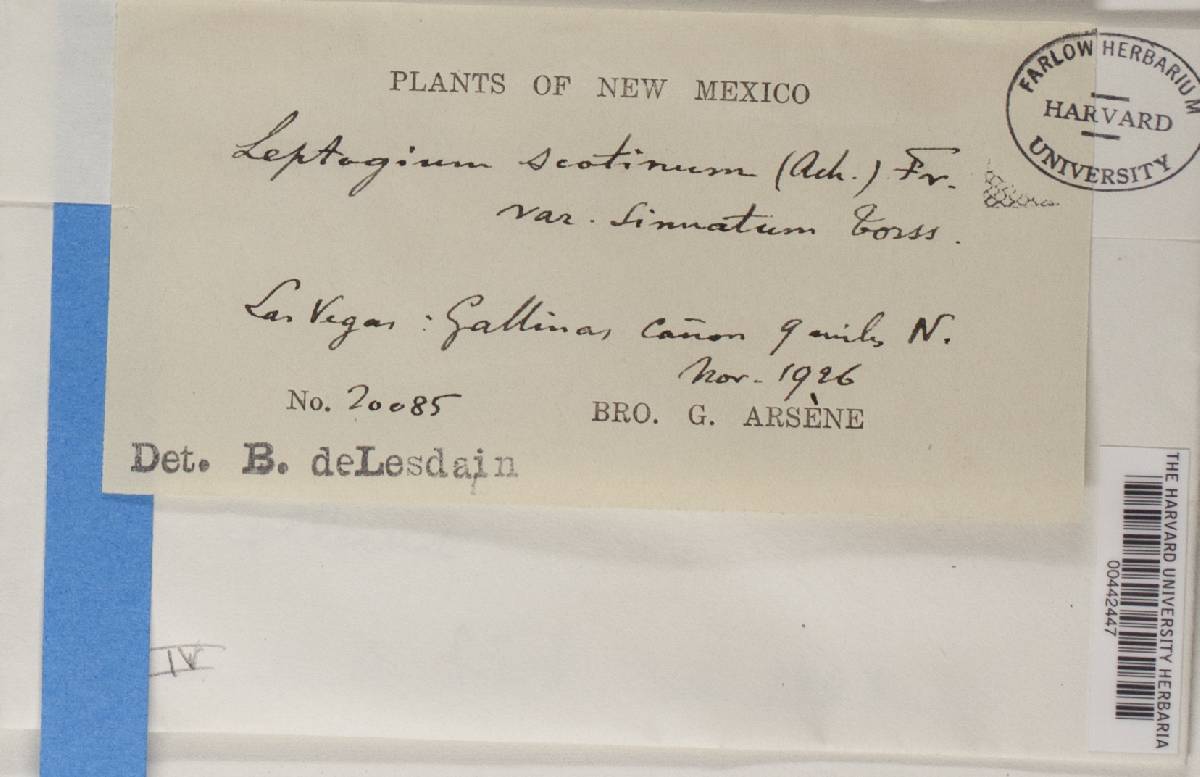 PLANTS OF NEW MEXICO
Leptogium scotinum (Ach.) Fr.
var. sinuatum Torss.
Las Vegas : Gallinas cañon 9 miles N.
Nov. 1926
No. 20085 BRO. G. ARSÈNE
Det. B. deLesdain
FARLOW HERBARIUM
HARVARD
UNIVERSITY
IV
THE HARVARD UNIVERSITY HERBARIA
00442447